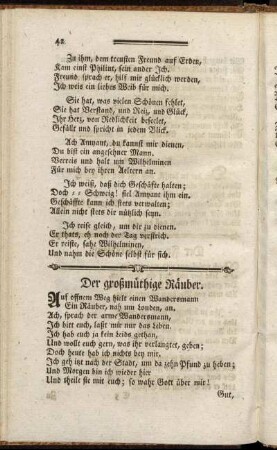 42
Zu ihm, dem treusten Freund auf Erden,
Kam einst Philint, sein ander Ich.
Freund, sprach er, hilf mir glücklich werden,
Ich weis ein liebes Weib für mich.
Sie hat, was vielen Schönen fehlet,
Sie hat Verstand, und Reiz, und Glück,
Ihr Herz, von Redlichkeit beseelet,
Gefällt und spricht in jedem Blick.
Ach Amyant, du kannst mir dienen,
Du bist ein angesehner Mann.
Verreis und halt um Wilhelminen
Für mich bey ihren Aeltern an.
Ich weiß, daß dich Geschäfte halten;
Doch :: Schweig! fiel Amyant ihm ein.
Geschäffte kann ich stets verwalten;
Allein nicht stets dir nützlich seyn.
Ich reise gleich, um dir zu dienen.
Er thats, eh noch der Tag verstrich.
Er reiste, sahe Wilhelminen,
Und nahm die Schöne selbst für sich.
Der großmüthige Räuber.
Auf offnem Weg hielt einen Wandersmann
Ein Räuber, nah um London, an.
Ach, sprach der arme Wandersmann,
Ich bitt euch, laßt mir nur das Leben.
Ich hab euch ja kein Leids gethan,
Und wollt euch gern, was ihr verlangtet, geben;
Doch heute hab ich nichts bey mir.
Ich geh itzt nach der Stadt, um da zehn Pfund zu heben;
Und Morgen bin ich wieder hier
Und theile sie mit euch; so wahr Gott über mir!
Gut,